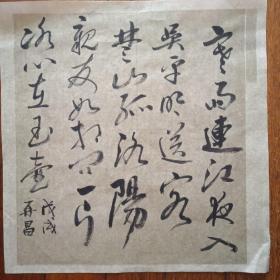 寒雨連江夜入
吴平明送客
楚山孤洛陽
親友如相问一片
冰心在玉壶
戊戌
再昌